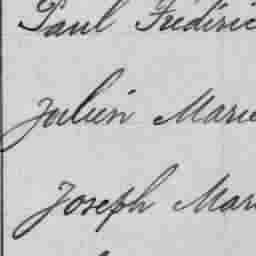 Paul Frédéric
Julien Marie
Joseph Mar